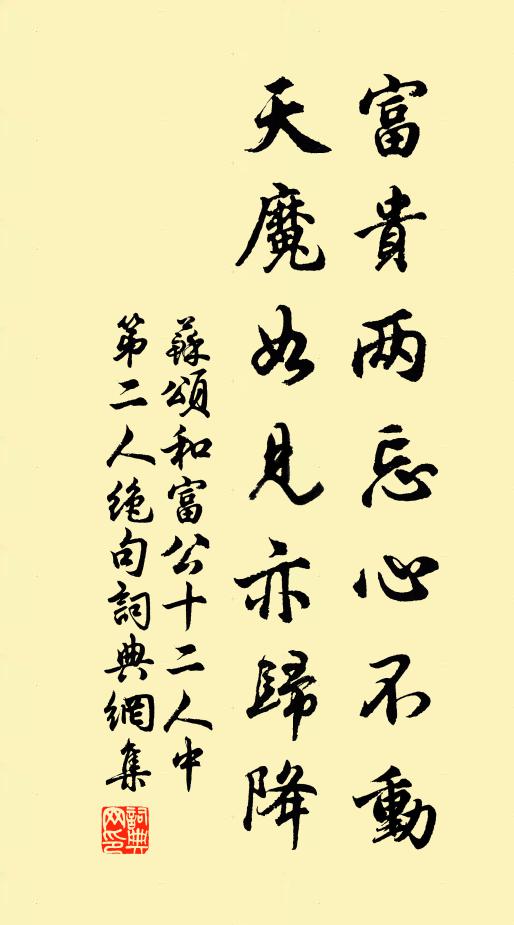 富貴两忘心不動
天魔如見亦歸降
蘇頌和富公十二人中
第二人絶句詞典網集
詞典网印